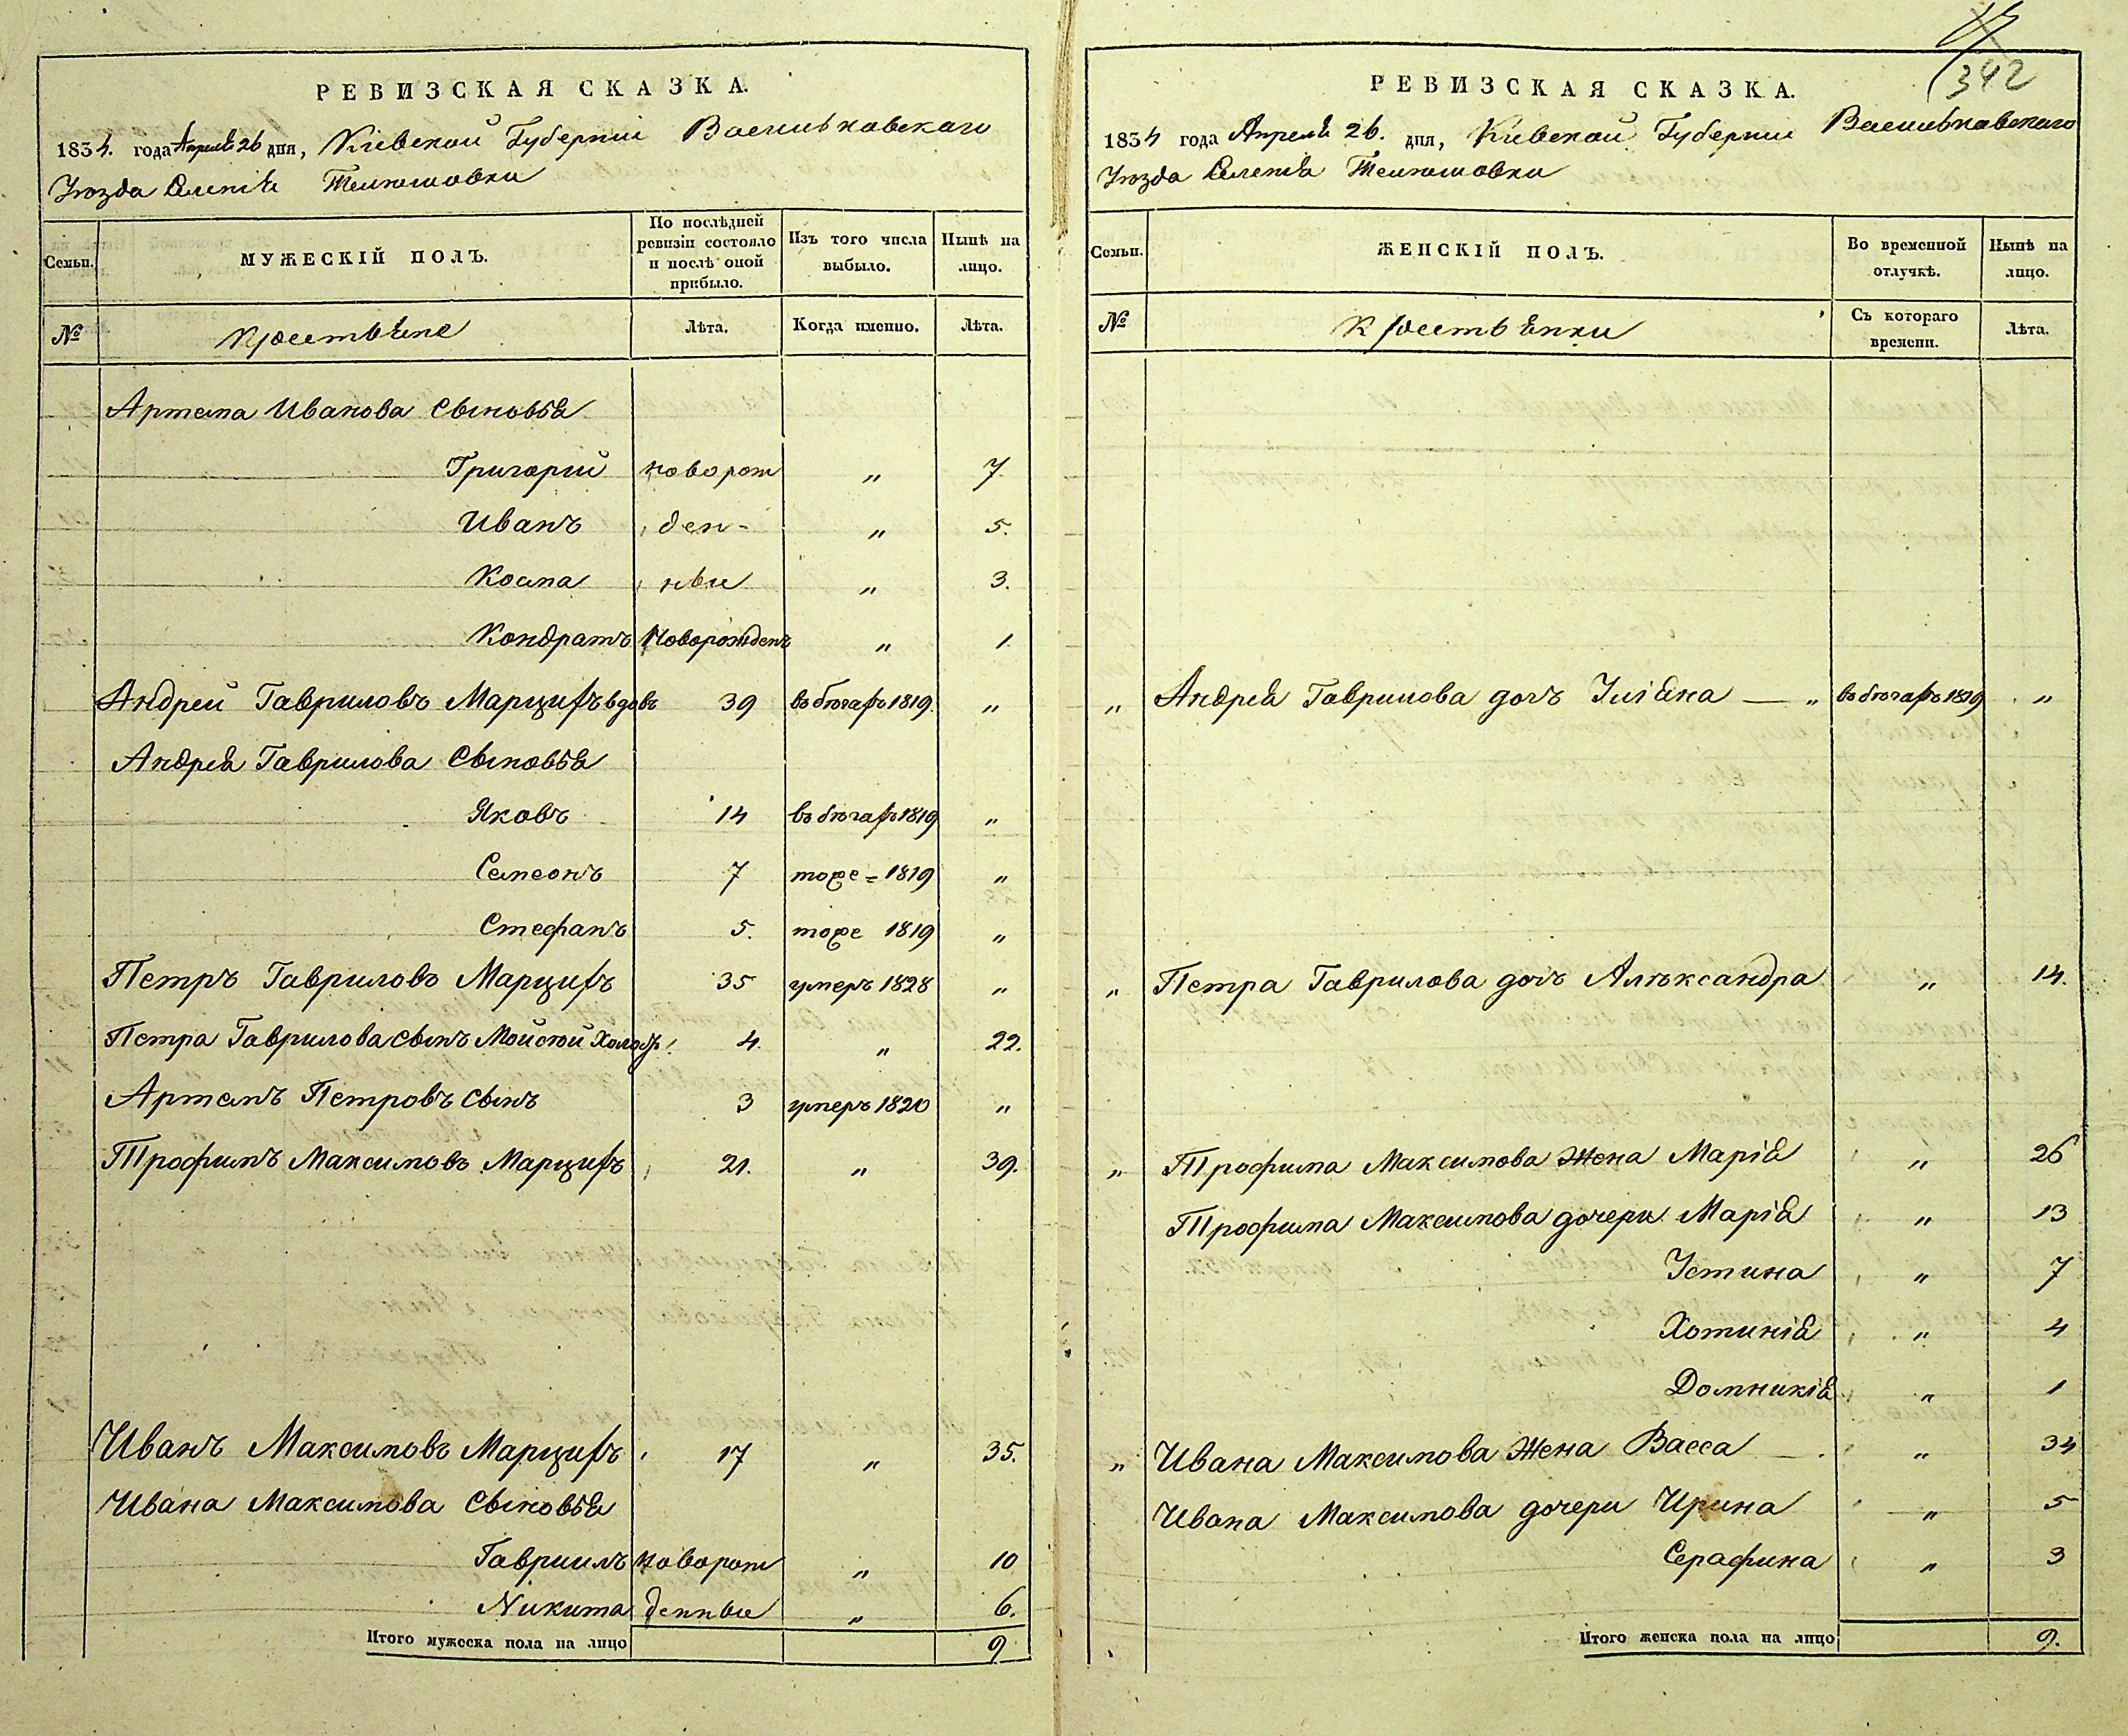 РЕВИЗСКАЯ СКАЗКА.
1834. года Апреля 26 дня, Кіевской Губерніи Васильковскаго
Уѣзда Селенія
МУЖЕСКІЙ ПОЛЪ.
Семьи.
По послѣдней ревизіи состояло и послѣ оной прибыло.
Изъ того числа выбыло.
Нынѣ на лицо.
№
Крестьяне
Лѣта.
Когда именно.
Лѣта.
Артема Иванова Сыновья
Григорій новорож „ 7
Иванъ ден- „ 5.
Косма ные „ 3.
Кондратъ Новорожденъ „ 1
Андрей Гавриловъ Марцифъ вдовъ 39 въ бѣгахъ 1819. „
Андрея Гаврилова Сыновья
Яковъ 14 въ бѣгахъ 1819 „
Семеонъ 7 тоже = 1819 „
Стефанъ 5. тоже 1819 „
Петръ Гавриловъ Марцифъ 35 умеръ 1828 „
Петра Гаврилова сынъ Мойсей 4. „ 22.
Артемъ Петровъ сынъ 3 умеръ 1820 „
Трофимъ Максимовъ Марцифъ 21. „ 39.
Иванъ Максимовъ Марцифъ 17 „ 35.
Ивана Максимова Сыновья
Гавриилъ новорож „ 10
Никита денные „ 6.
Итого мужеска пола на лицо 9
342
РЕВИЗСКАЯ СКАЗКА.
1834 года Апреля 26. дня, Кіевской Губерніи Васильковскаго
Уѣзда Селенія
Семьи.
ЖЕНСКІЙ ПОЛЪ.
Во временной отлучкѣ.
Нынѣ на лицо.
№
Крестьянки
Съ котораго времени.
Лѣта.
„ Андрея Гаврилова дочь Уліяна — „ въ бѣгахъ 1819 „
„ Петра Гаврилова дочь Алѣксандра „ 14.
„ Трофима Максимова жена Марія „ 26
Трофима Максимова дочери Марія „ 13
Устина „ 7
Хотинія „ 4
Домникія „ 1
„ Ивана Максимова жена Васса „ 34
Ивана Максимова дочери Ирина „ 5
Серафина „ 3
Итого женска пола на лицо 9.